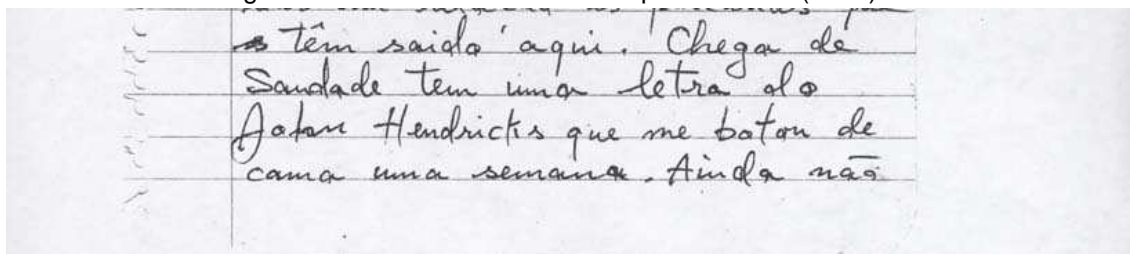 têm saido aqui. Chega de
Saudade tem uma letra do
John Hendricks que me botou de
cama uma semana. Ainda não